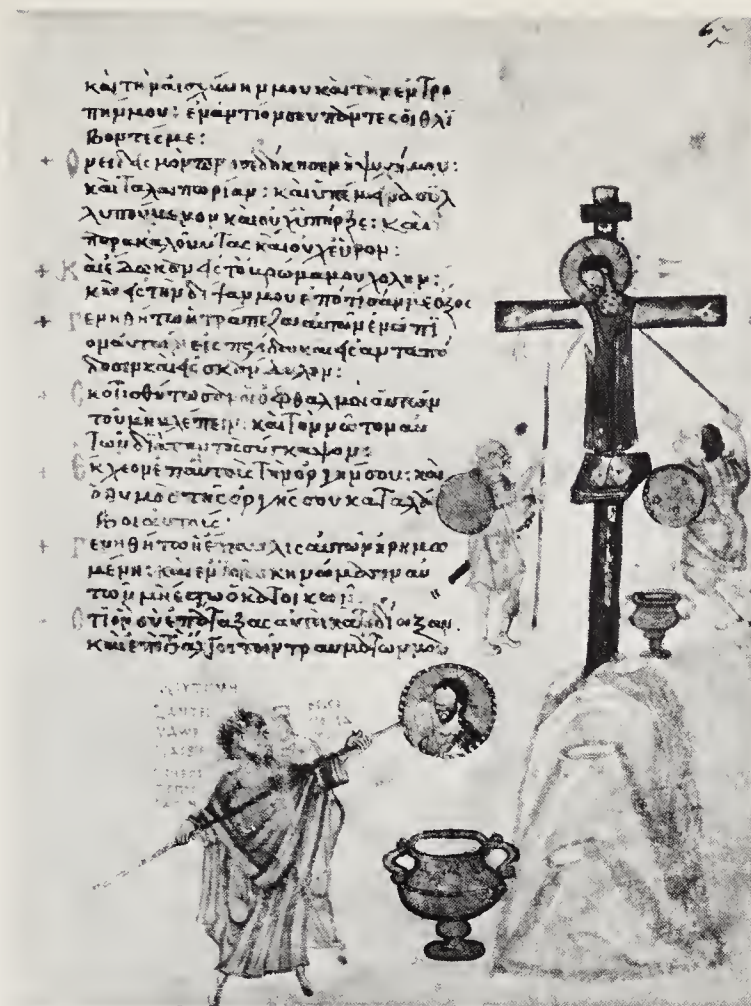 και την αισχυνην μου και την εντρο
πην μου : εναντιον σου παντες οι θλι
βοντες με :
+ Ονειδισμον προσεδοκησεν η ψυχη μου :
και ταλαιπωριαν : και υπεμεινα συλ
λυπουμενον και ουχ υπηρξε : και
παρακαλουντας και ουχ ευρον :
+ Και εδωκαν εις το βρωμα μου χολην :
και εις την διψαν μου εποτισαν με οξος
+ Γενηθητω η τραπεζα αυτων ενωπι
ον αυτων εις παγιδα και εις ανταπο
δοσιν και εις σκανδαλον :
+ Σκοτισθητωσαν οι οφθαλμοι αυτων
του μη βλεπειν : και τον νωτον αυ
των δια παντος συγκαμψον :
+ Εκχεον επ αυτους την οργην σου : και
ο θυμος της οργης σου καταλα
βοι αυτους :
+ Γενηθητω η επαυλις αυτων ηρημω
μενη : και εν τοις σκηνωμασιν αυ
των μη εστω ο κατοικων :
Οτι ον συ επαταξας αυτοι κατεδιωξαν
και επι το αλγος των τραυματων μου